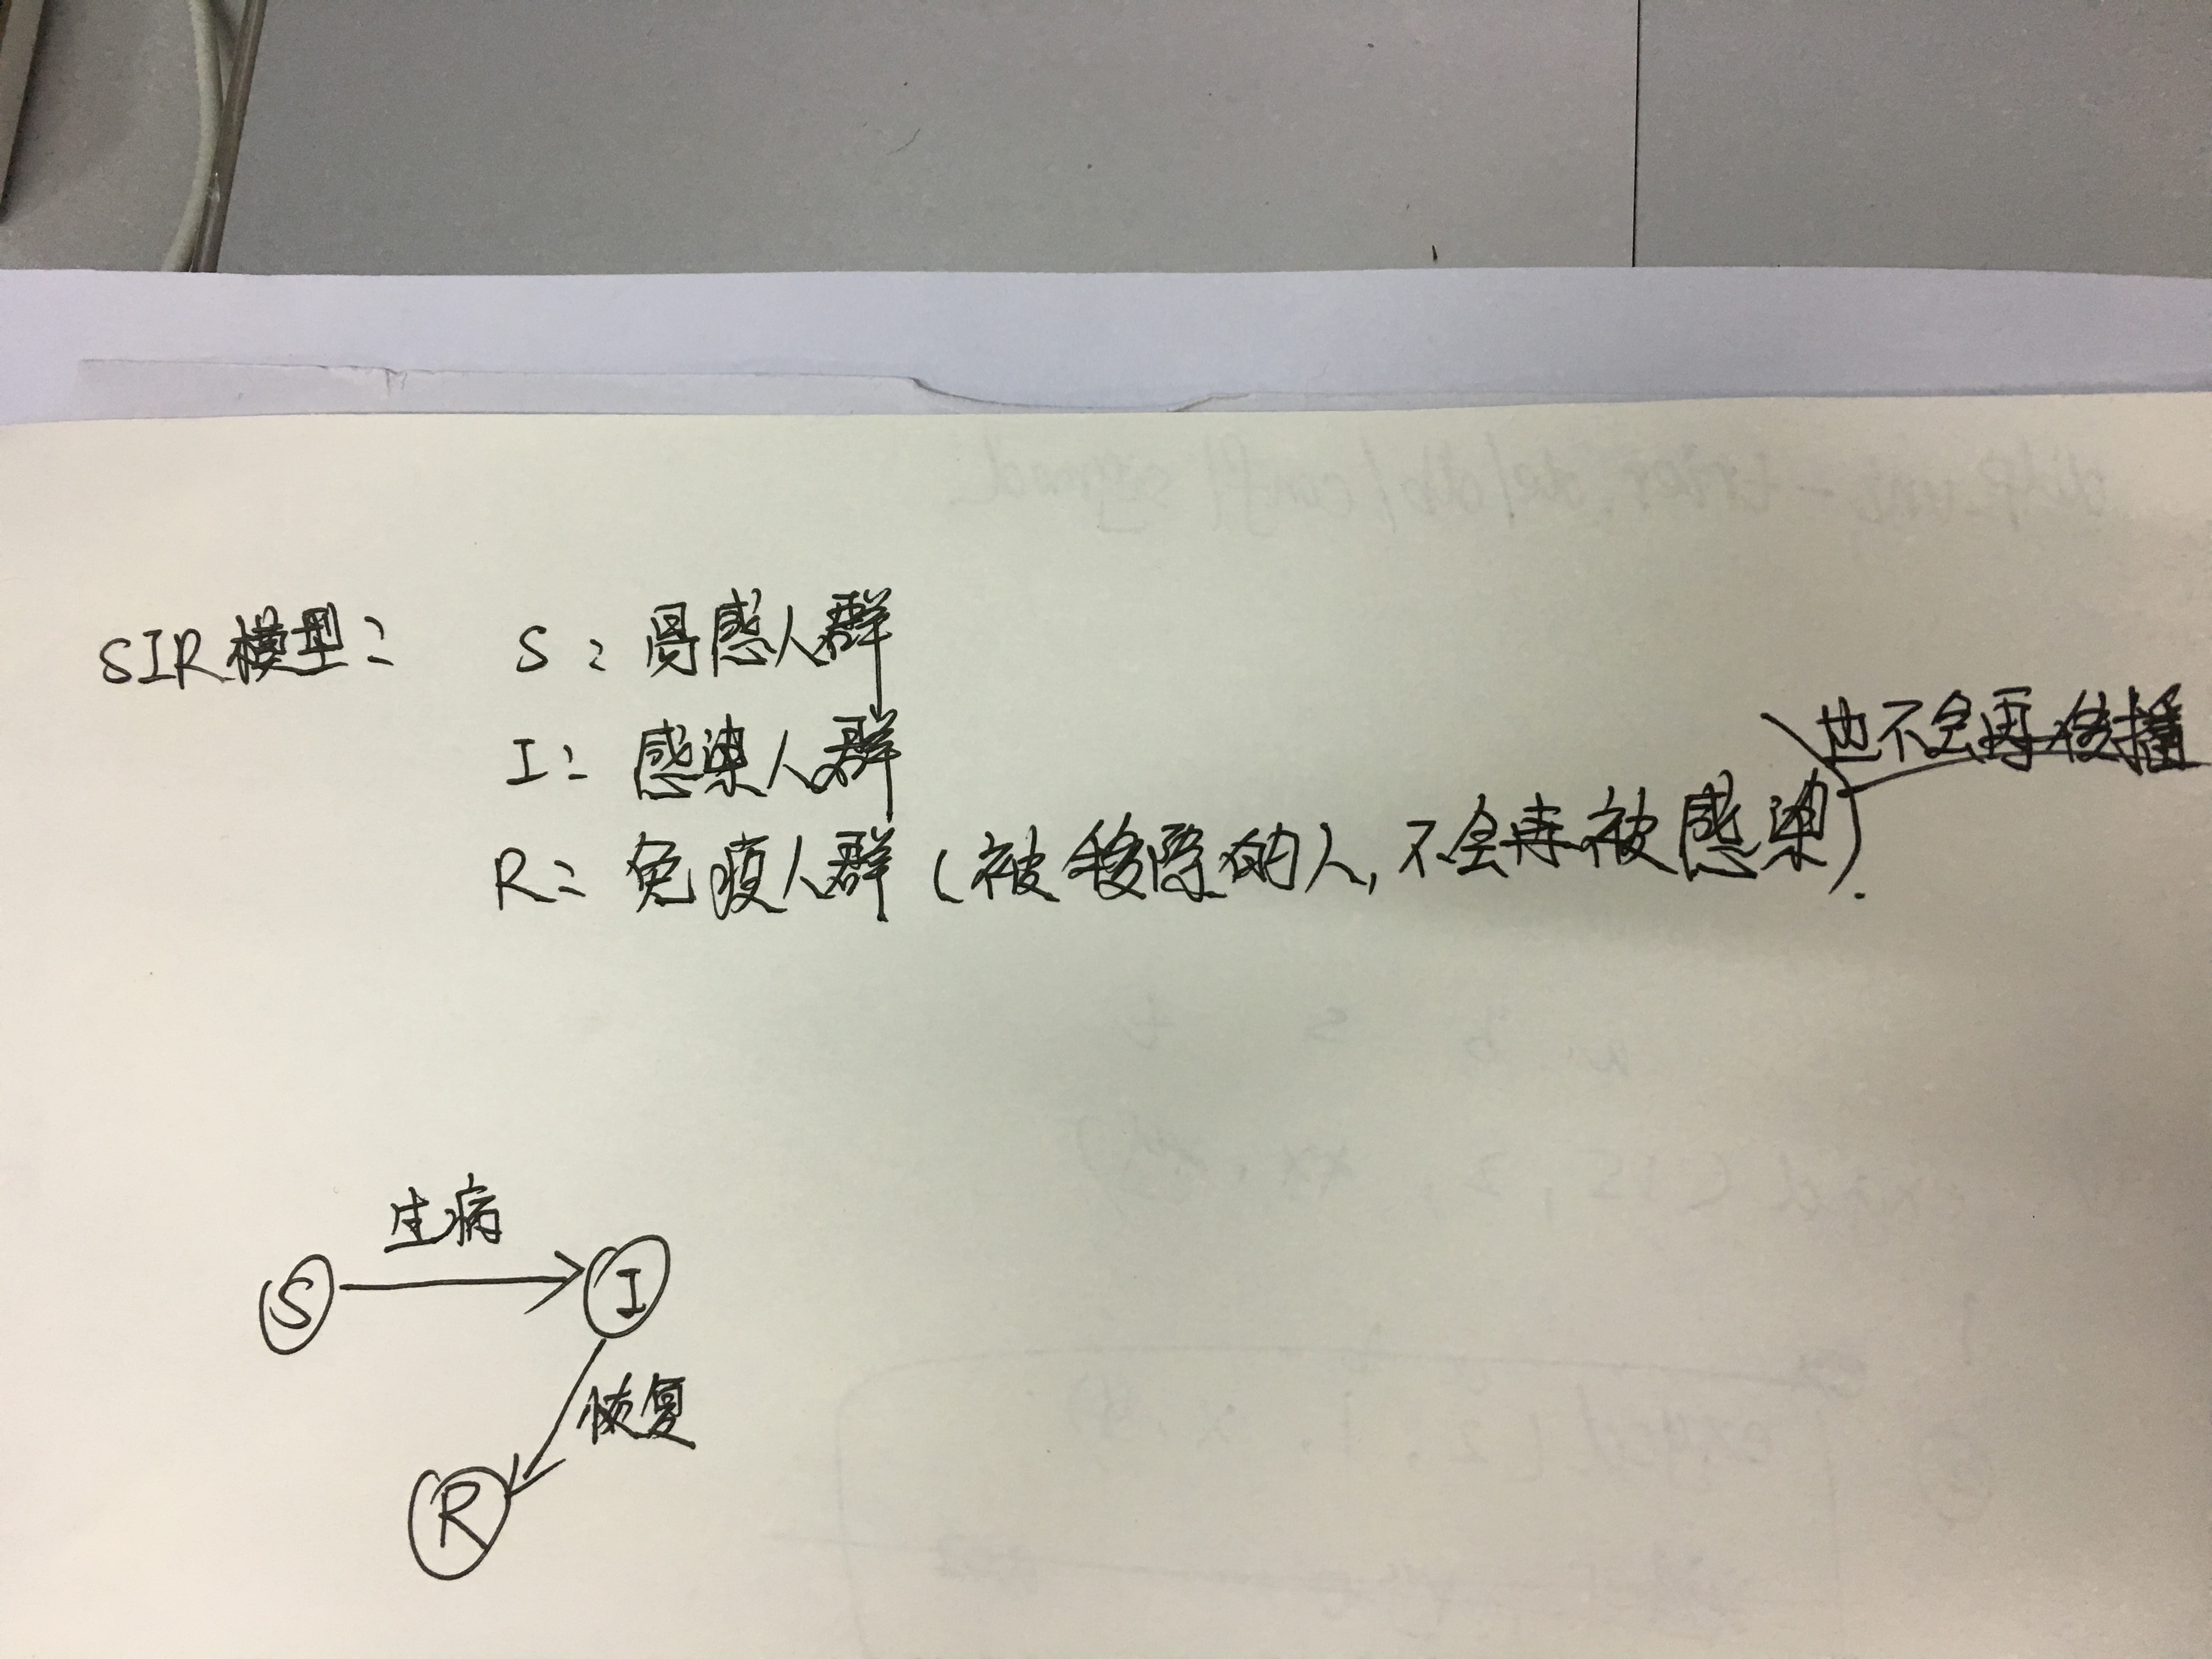 SIR模型: S: 易感人群
I: 感染人群
R: 免疫人群 (被移除的人, 不会再被感染).
也不会再传播
生病
S I
恢复
R